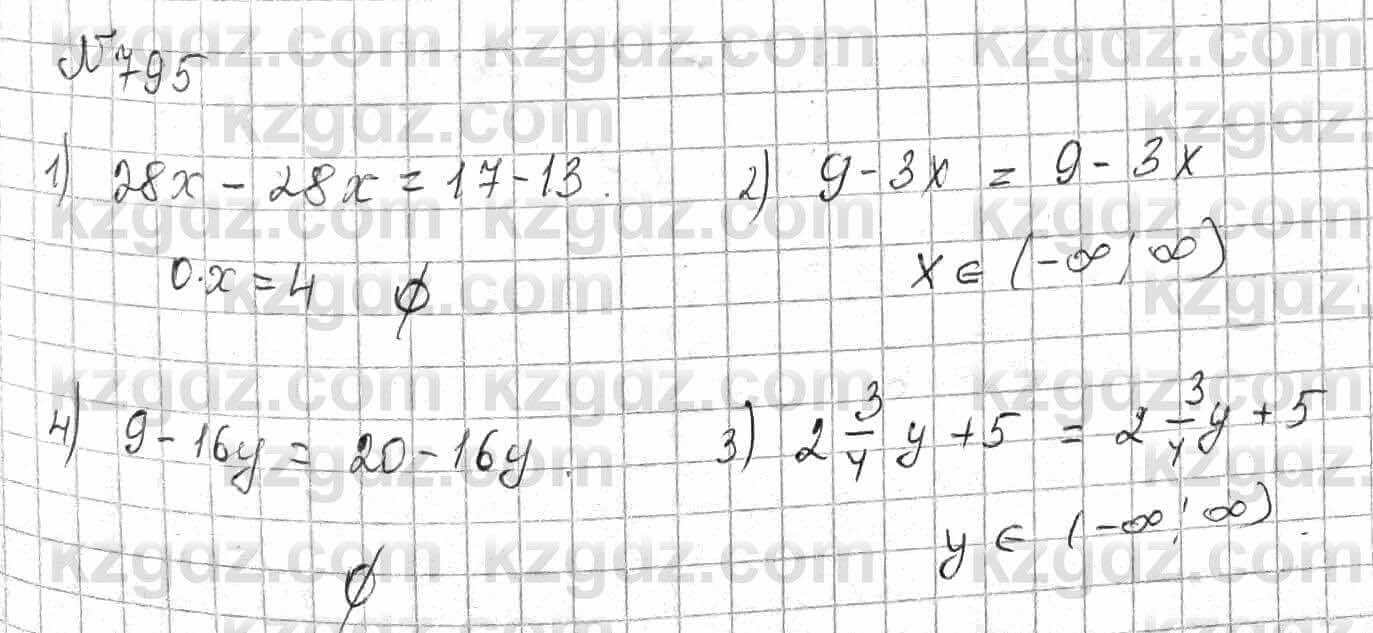 №795
1) 28x - 28x = 17 - 13.
0·x = 4 ∅
2) 9 - 3x = 9 - 3x
x ∈ (-∞; ∞)
4) 9 - 16y = 20 - 16y.
∅
3) 2 3/4 y + 5 = 2 3/4 y + 5
y ∈ (-∞; ∞).
kzgdz.com